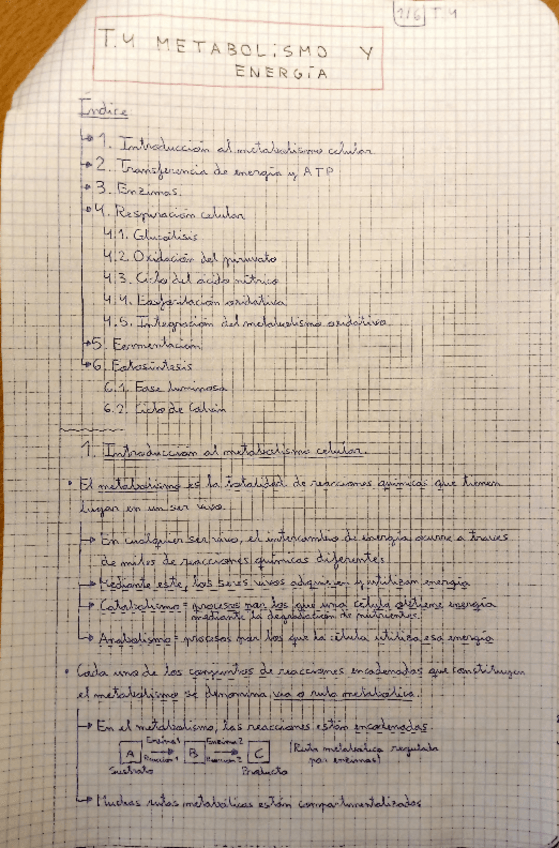 2/6 T.4
T.4 METABOLISMO Y
ENERGÍA
Índice
1. Introducción al metabolismo celular
2. Transferencia de energía y ATP
3. Enzimas.
4. Respiración celular
4.1. Glucólisis
4.2. Oxidación del piruvato
4.3. Ciclo del ácido nítrico
4.4. Fosforilación oxidativa
4.5. Integración del metabolismo oxidativo
5. Fermentación
6. Fotosíntesis
6.1. Fase luminosa
6.2. Ciclo de Calvin
1. Introducción al metabolismo celular.
• El metabolismo es la totalidad de reacciones químicas que tienen
lugar en un ser vivo.
→ En cualquier ser vivo, el intercambio de energía ocurre a través
de miles de reacciones químicas diferentes
→ Mediante este, los seres vivos adquieren y utilizan energía
→ Catabolismo = procesos por los que una célula obtiene energía
mediante la degradación de nutrientes.
→ Anabolismo = procesos por los que la célula utiliza esa energía
• Cada uno de los conjuntos de reacciones encadenadas que constituyen
el metabolismo se denomina vía o ruta metabólica.
→ En el metabolismo, las reacciones están encadenadas.
Enzima 1 Enzima 2
A → B → C (Ruta metabólica regulada
Reacción 1 Reacción 2 por enzimas)
Sustrato Producto
→ Muchas rutas metabólicas están compartimentalizadas